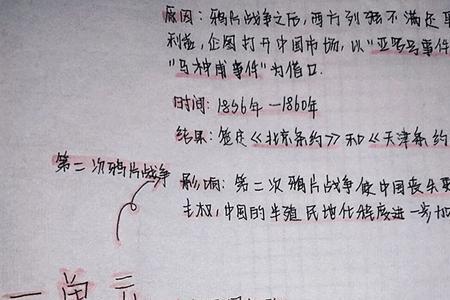 原因：鸦片战争之后，西方列强不满足
利益，企图打开中国市场，以“亚罗号事件
“马神甫事件”为借口．
时间：1856年—1860年
结果：签定《北京条约》和《天津条约
第二次鸦片战争
影响：第二次鸦片战争使中国丧失
主权，中国的半殖民地化程度进一步加